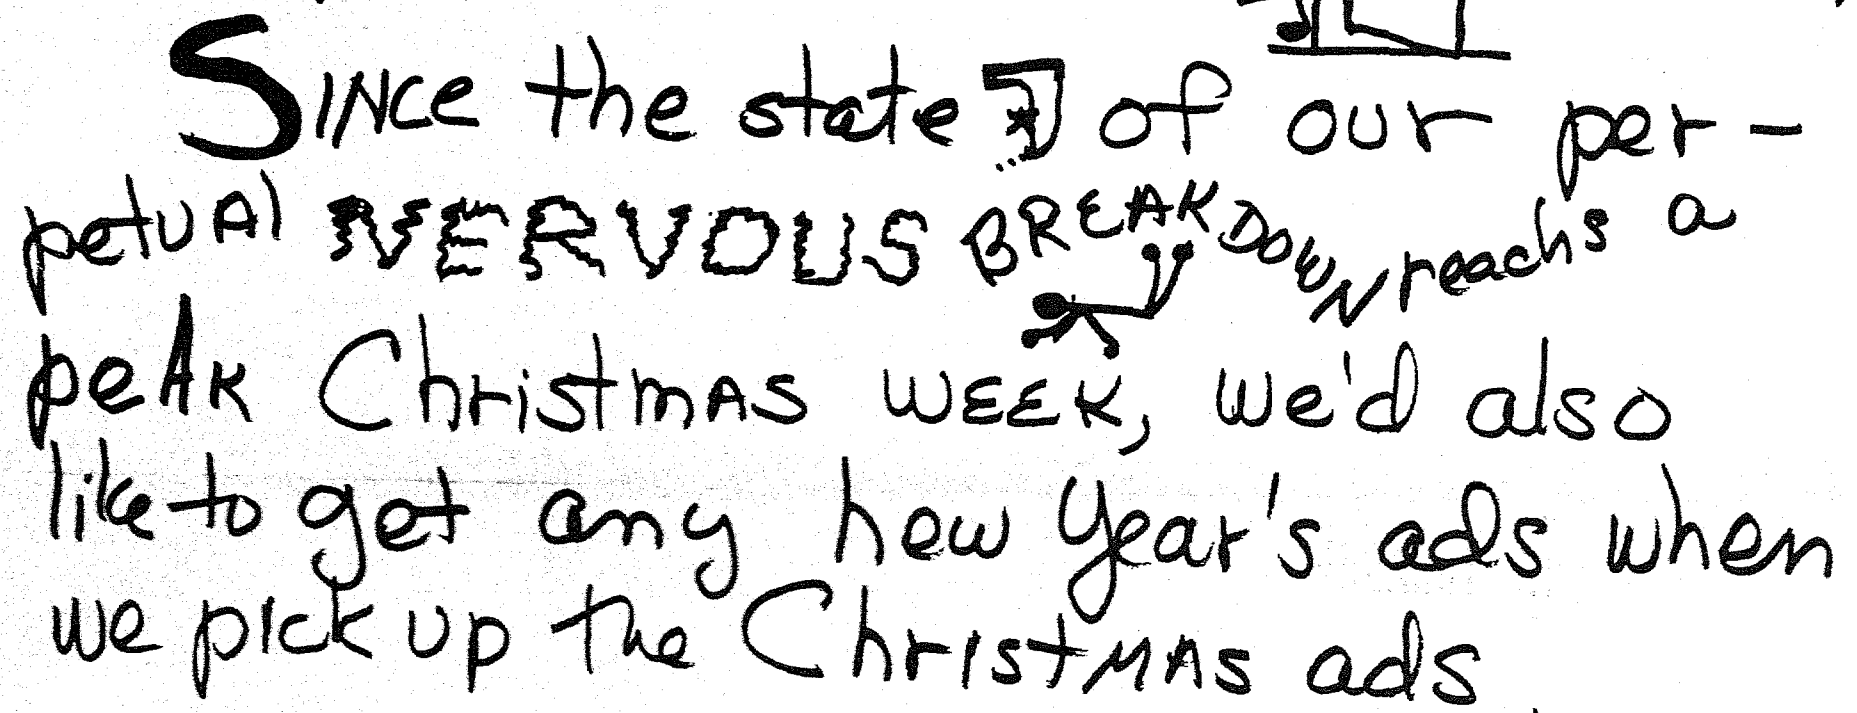 Since the state of our per-
petual NERVOUS BREAKDOWN reachs a
peak Christmas WEEK, we'd also
like to get any new Year's ads when
we pick up the Christmas ads